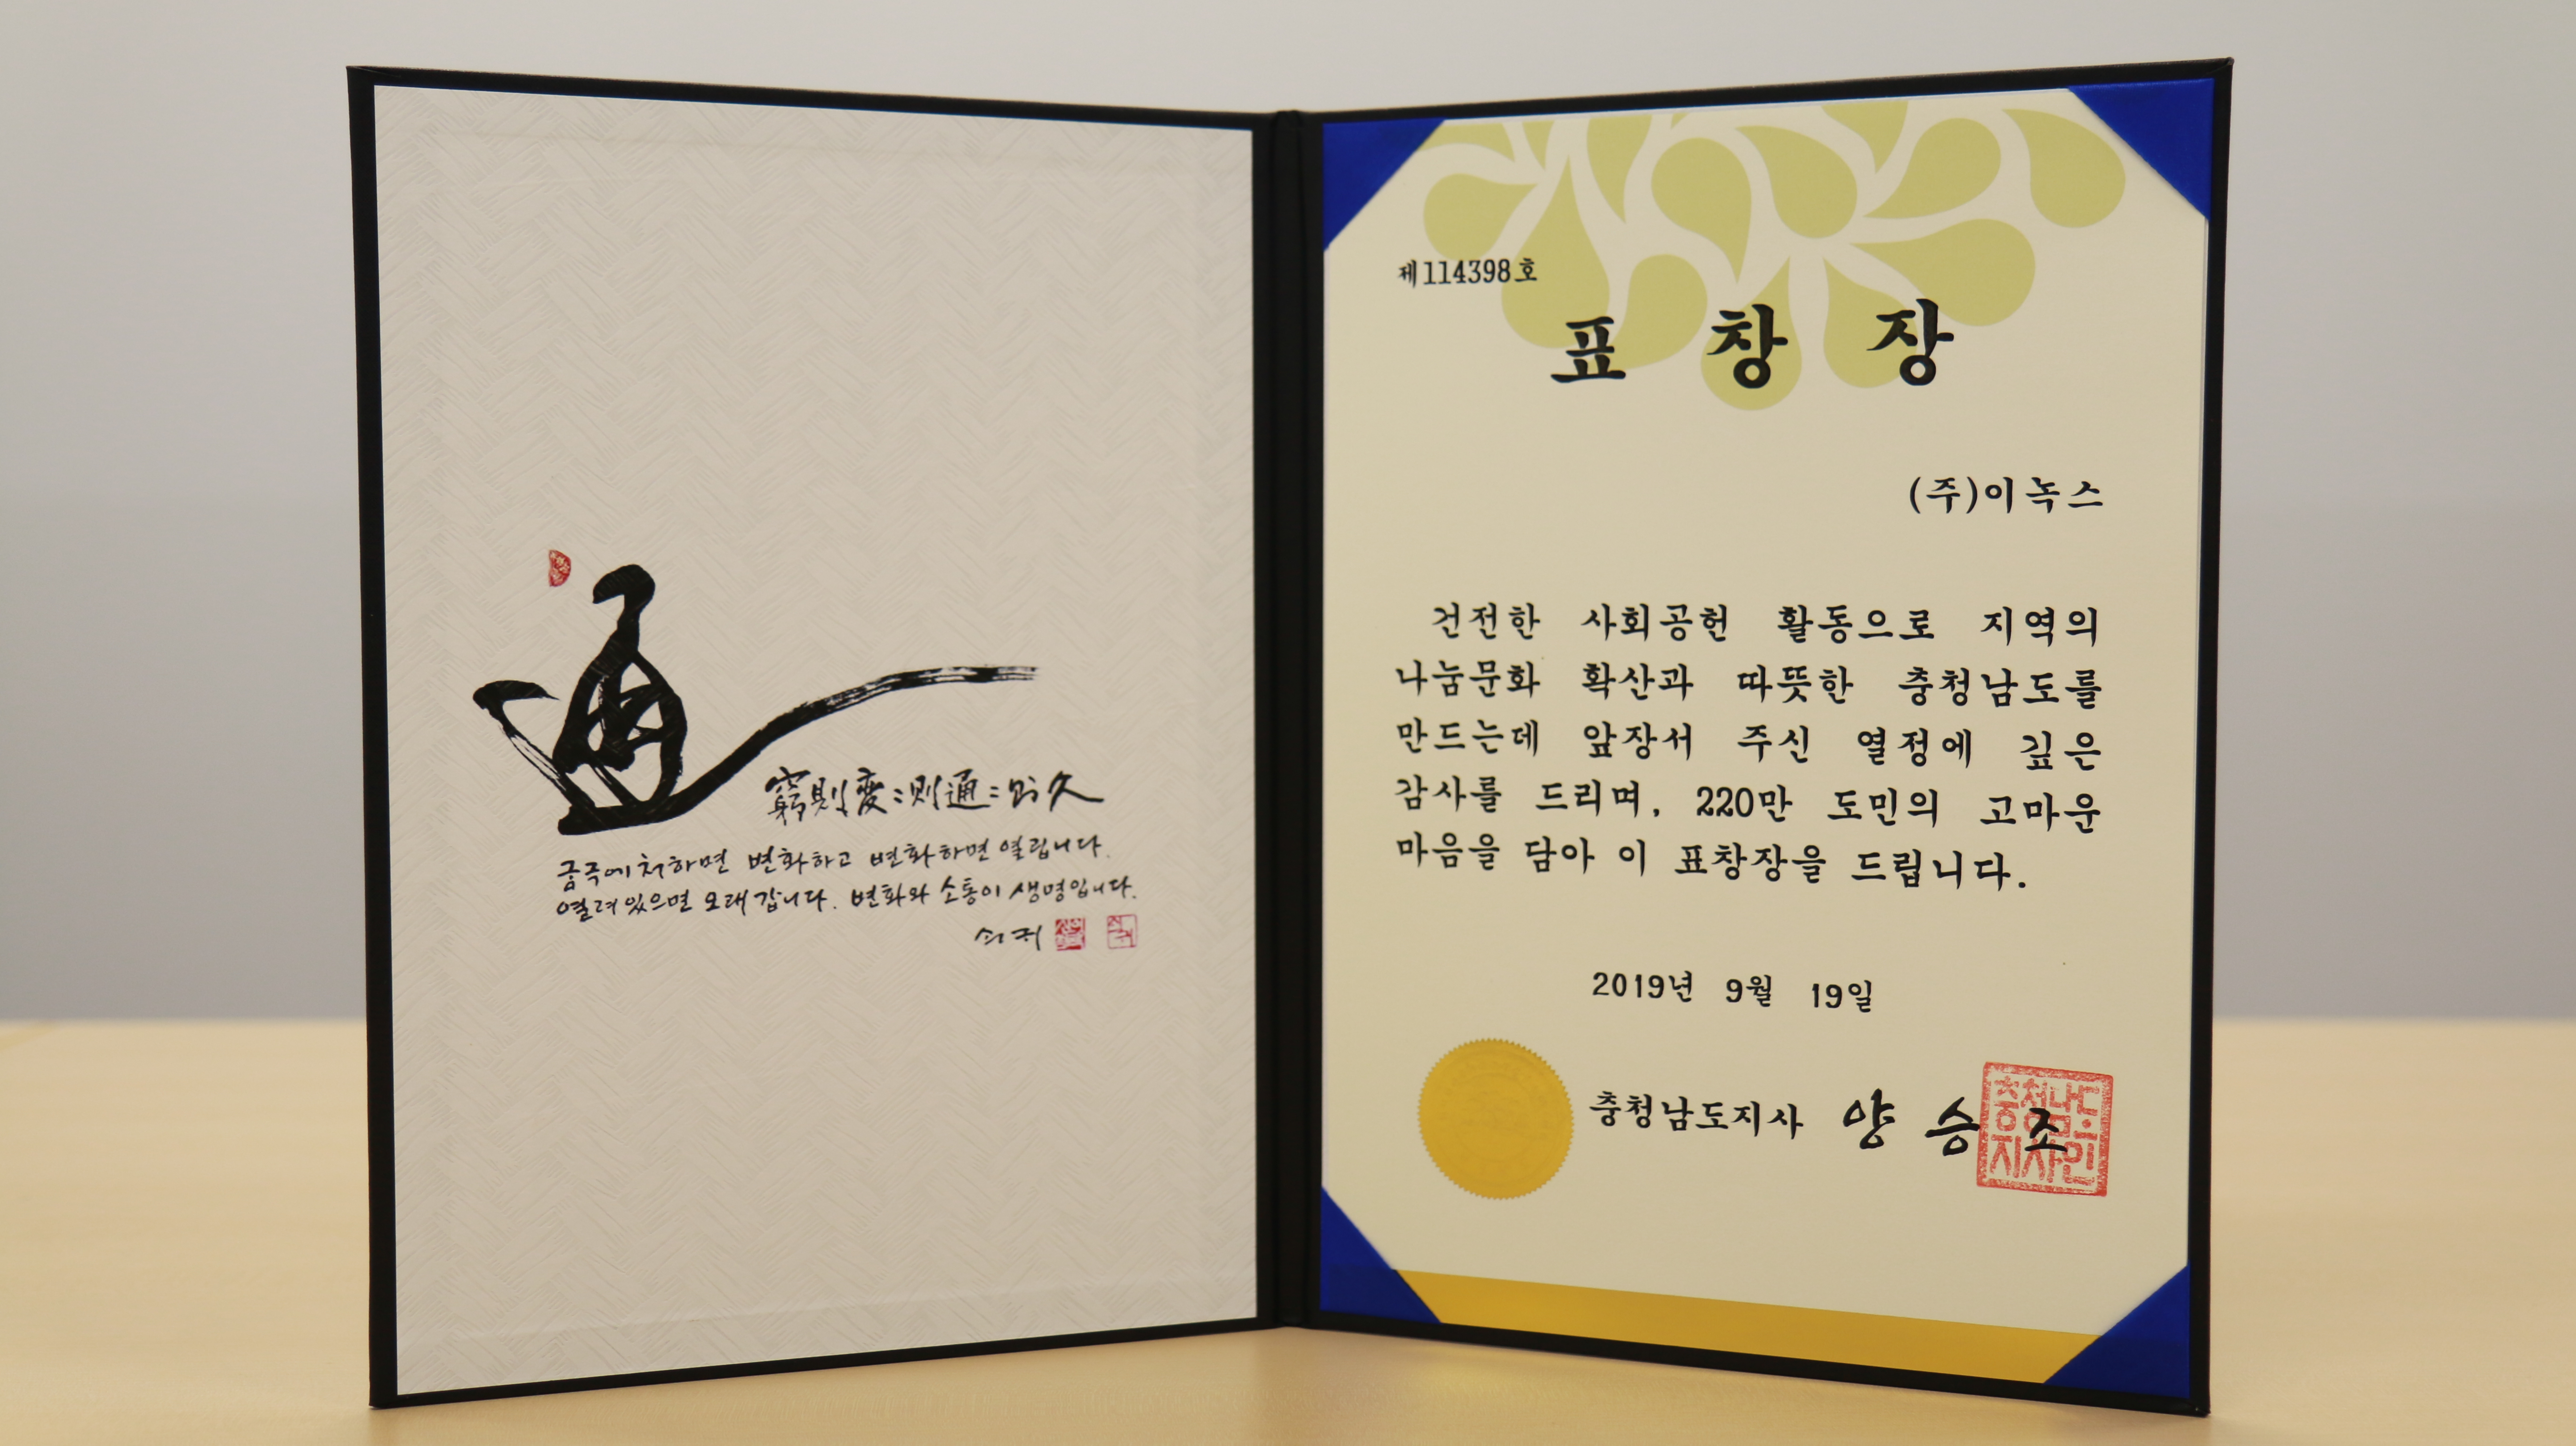 通
窮則変〻則通〻則久
궁극에 처하면 변화하고 변화하면 열립니다.
열려있으면 오래 갑니다. 변화와 소통이 생명입니다.
쇠귀
제114398호
표 창 장
(주)이녹스
건전한 사회공헌 활동으로 지역의
나눔문화 확산과 따뜻한 충청남도를
만드는데 앞장서 주신 열정에 깊은
감사를 드리며, 220만 도민의 고마운
마음을 담아 이 표창장을 드립니다.
2019년 9월 19일
충청남도지사 양 승 조
충청남도
지사인